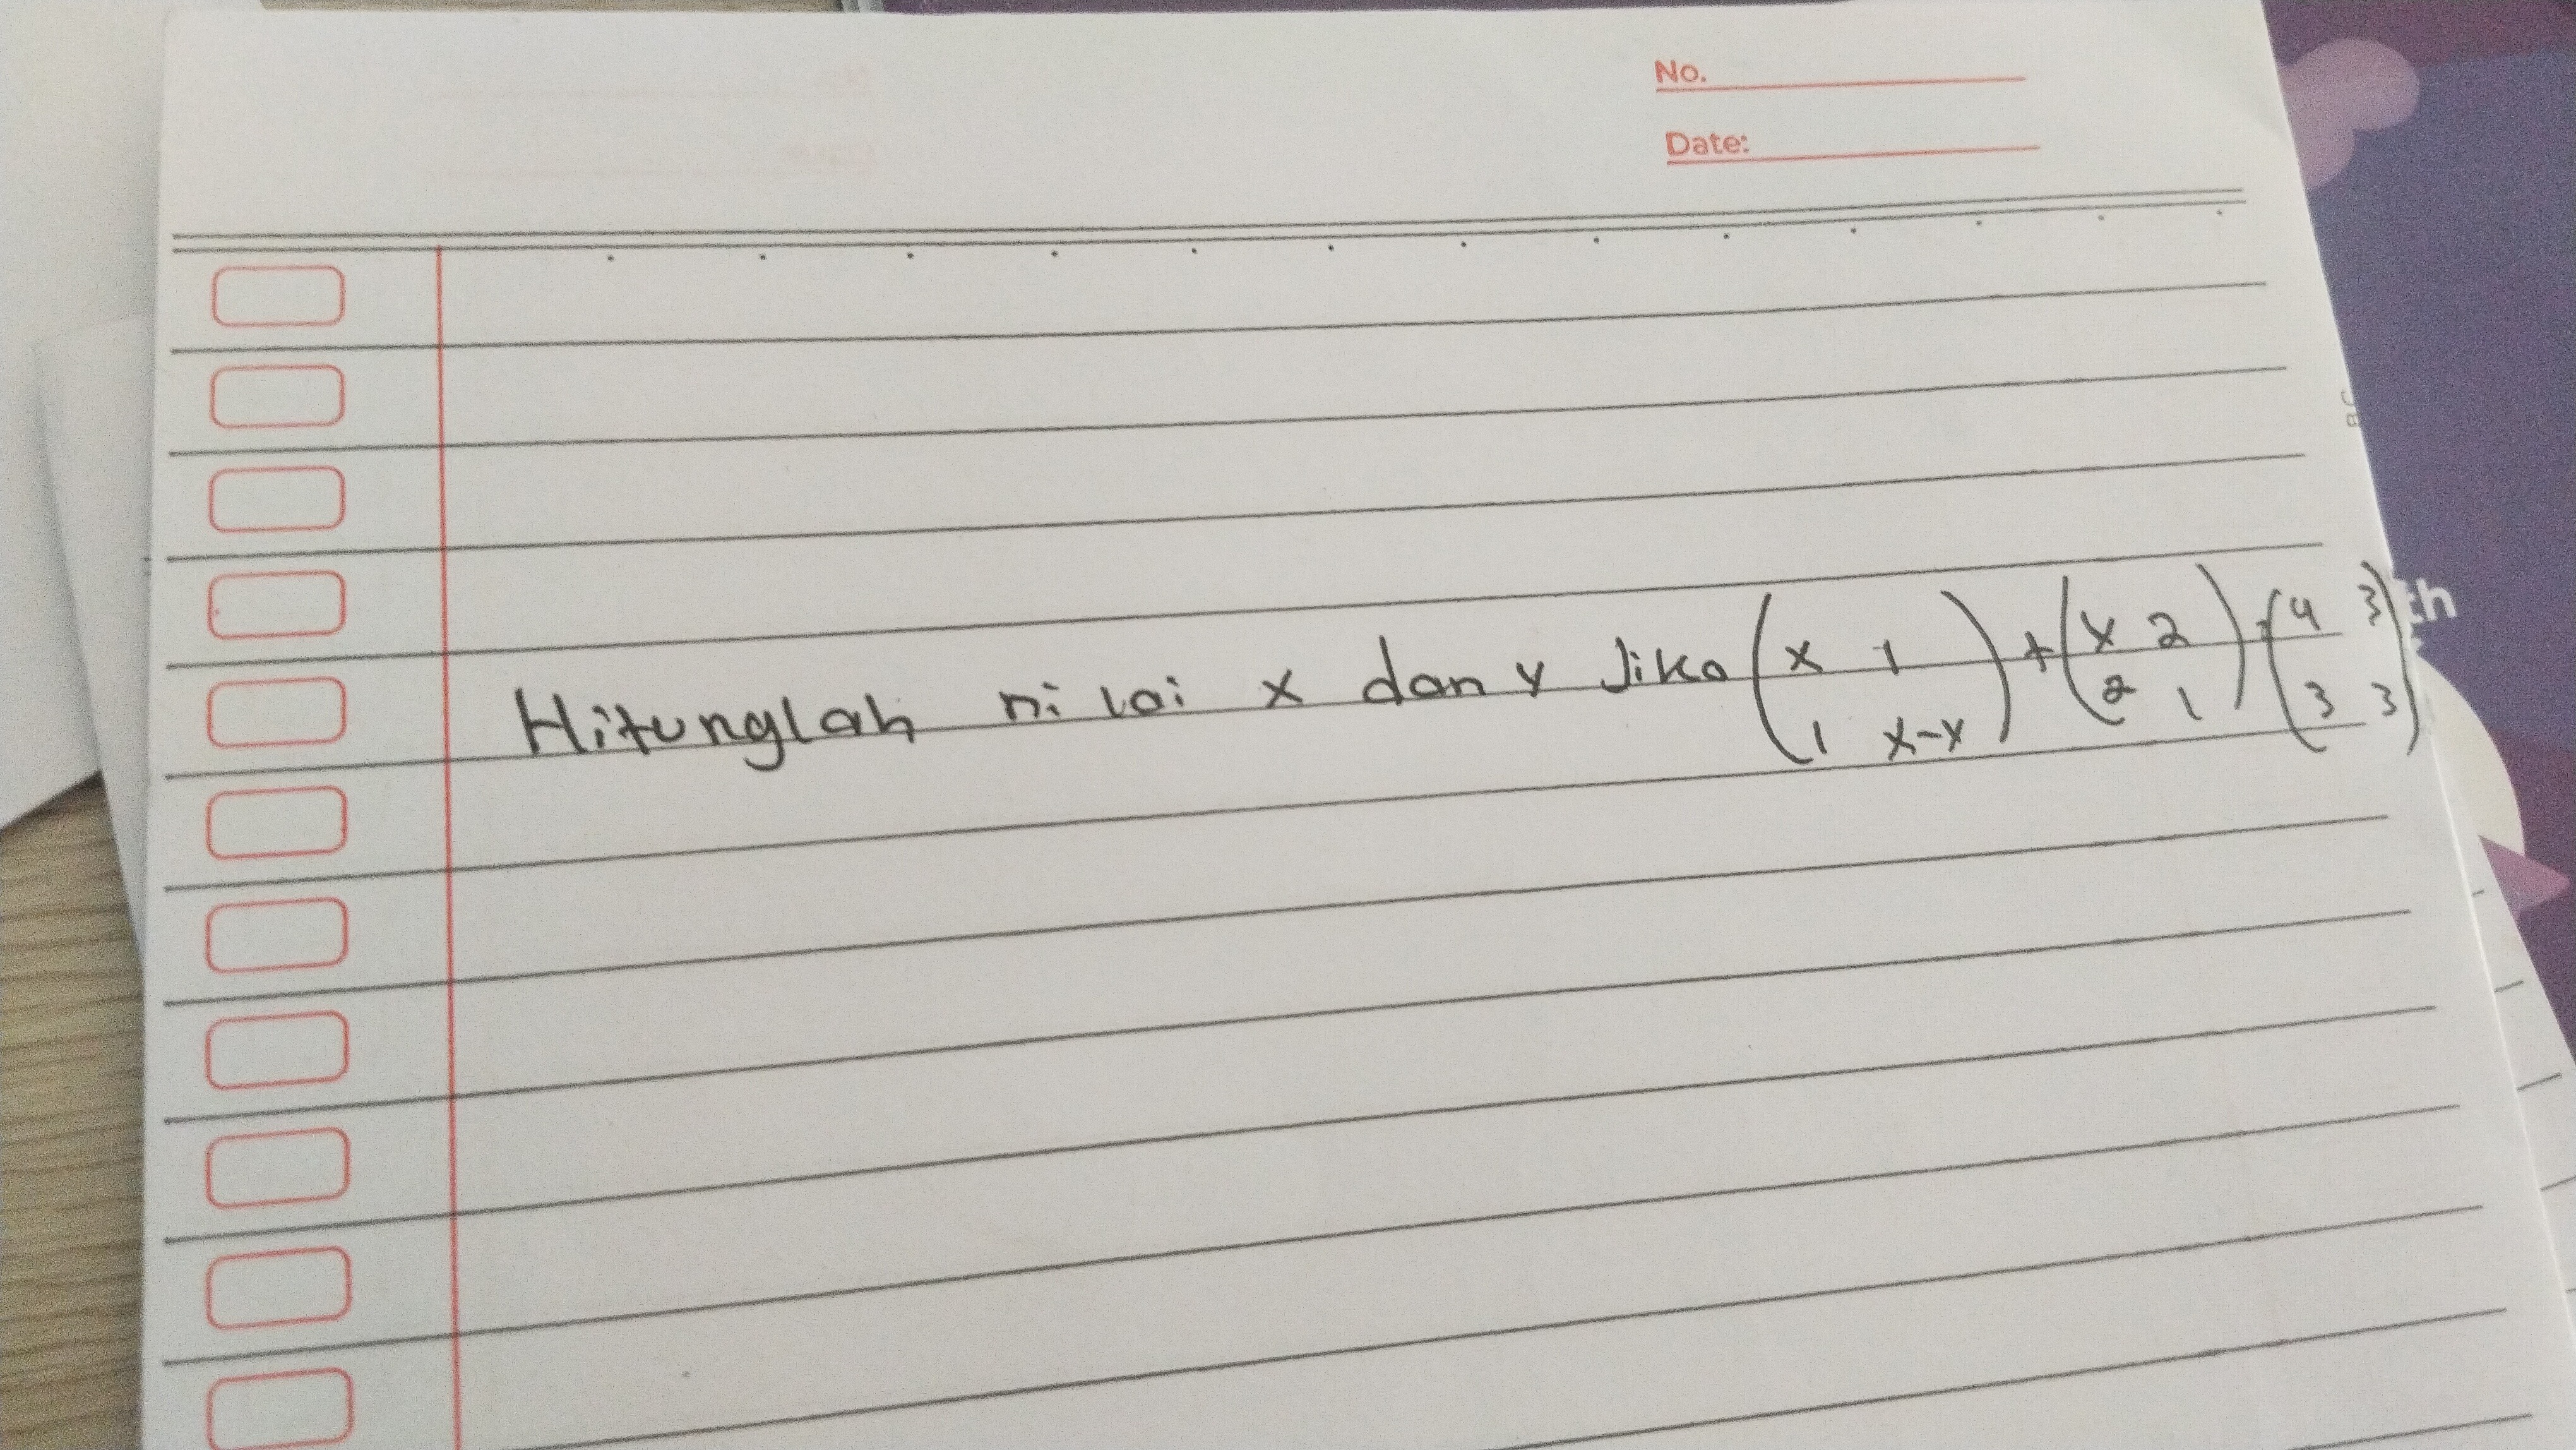 No.
Date:
Hitunglah nilai x dan y Jika (x 1 1 x-y) + (y 2 2 1) = (4 3 3 3)
th